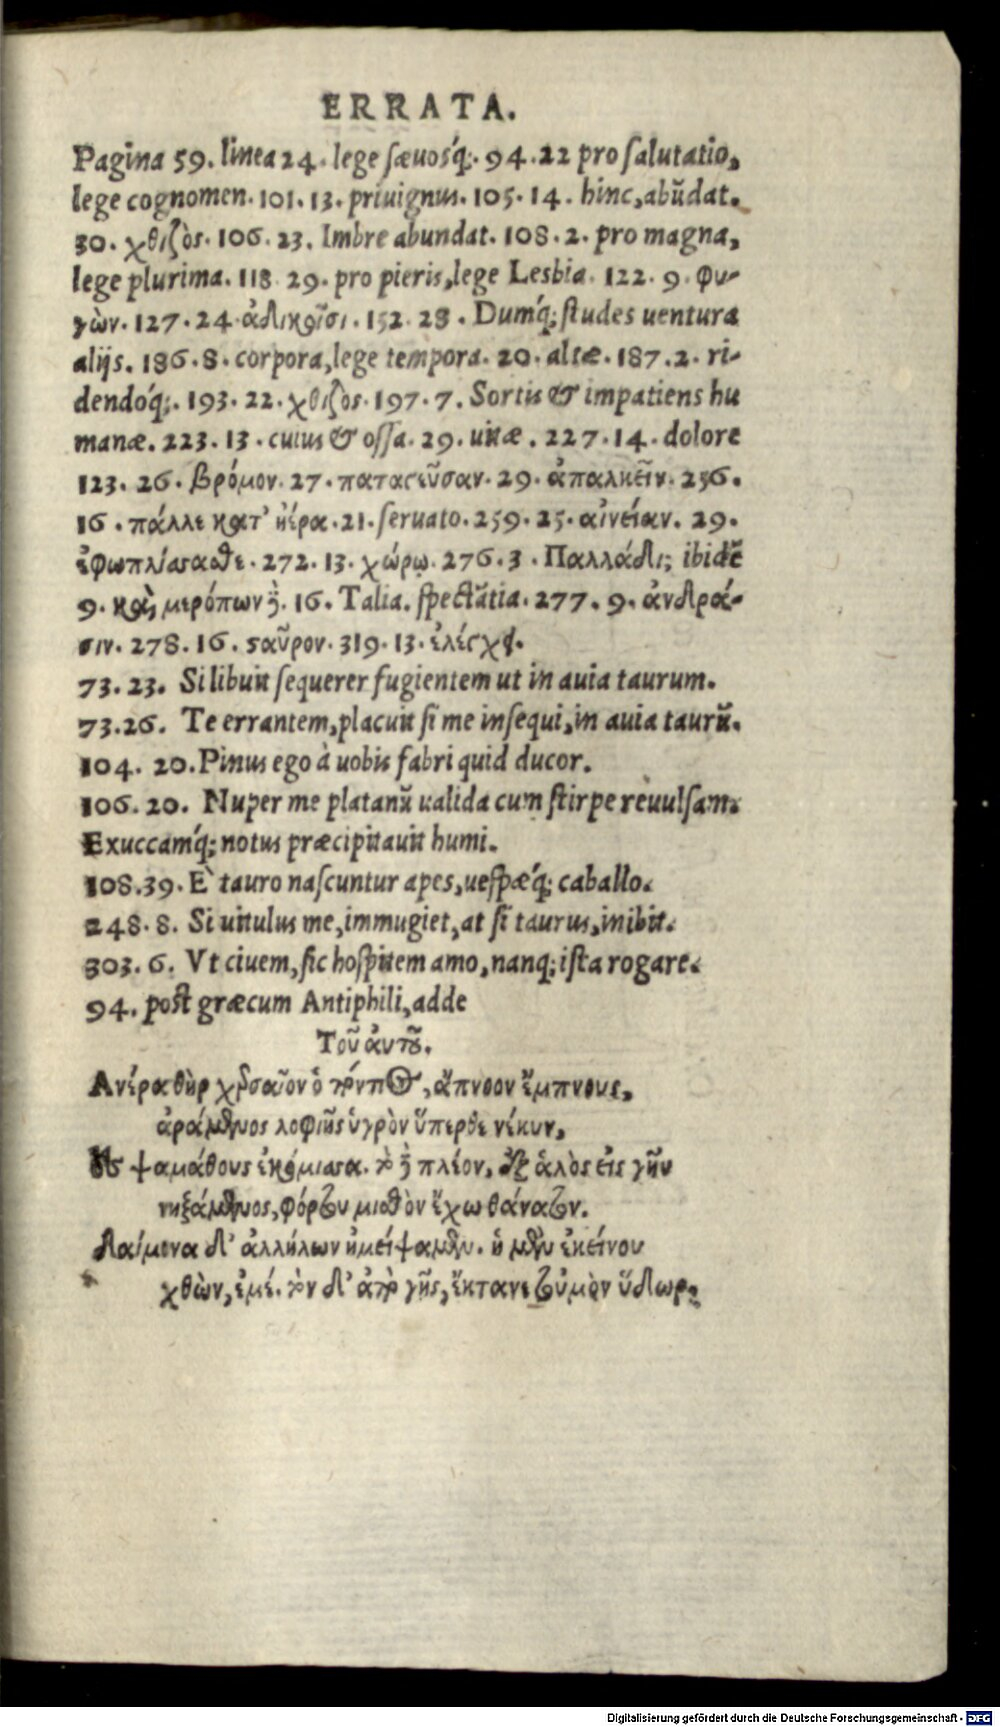 ERRATA.
Pagina 59. linea 24. lege sæuosq́;. 94.22 pro salutatio,
lege cognomen. 101. 13. priuignus. 105. 14. hinc, abũdat.
30. χθιζὸς. 106. 23. Imbre abundat. 108. 2. pro magna,
lege plurima. 118 29. pro pieris, lege Lesbia. 122. 9. φυ-
γὼν. 127. 24. ἀδικοῖσι. 152. 28. Dumq́; studes uentura
alijs. 186. 8. corpora, lege tempora. 20. altæ. 187. 2. ri-
dendoq́;. 193. 22. χθιζος. 197. 7. Sortis & impatiens hu
manæ. 223. 13. cuius & ossa. 29. uitæ. 227. 14. dolore
123. 26. βρόμον. 27. παταγεῦσαν. 29. ἀπαλκεῖν. 256.
16. πάλλε κατ' ἠέρα. 21. seruato. 259. 25. αἰνείαν. 29.
ἐφωπλίσασθε. 272. 13. χώρῳ. 276. 3. Παλλάδι; ibidẽ
9. καὶ μερόπων δὲ. 16. Talia. spectãtia. 277. 9. ἀνδρά-
σιν. 278. 16. ταῦρον. 319. 13.
73. 23. Si libuit sequerer fugientem ut in auia taurum.
73. 26. Te errantem, placuit si me insequi, in auia taurũ.
104. 20. Pinus ego à uobis fabri quid ducor.
106. 20. Nuper me platanũ ualida cum stirpe reuulsam.
Exuccamq́; notus præcipitauit humi.
108. 39. E` tauro nascuntur apes, uespæq́; caballo.
248. 8. Si uitulus me, immugiet, at si taurus, inibit.
303. 6. Vt ciuem, sic hospitem amo, nanq; ista rogare.
94. post græcum Antiphili, adde
Τοῦ ἀυτοῦ.
Ανέρα θὴρ χερσαῖον ὁ πόντιος, ἄπνοον ἔμπνους,
ἀράμενος λοφιῆς ὑγρὸν ὕπερθε νέκυν,
Εἰς ψαμάθους ἐκόμισσα. τὸ δὲ πλέον, ἐξ ἁλὸς εἰς γῆν
νηξάμενος, φόρτου μισθὸν ἔχω θάνατον.
Δαίμονα δ' ἀλλήλων ἠμείψαμεν. ἡ μὲν ἐκείνου
χθὼν, ἐμέ. τὸν δ' ἀπὸ γῆς, ἔκτανε τοὐμὸν ὕδωρ.
Digitalisierung gefördert durch die Deutsche Forschungsgemeinschaft - DFG